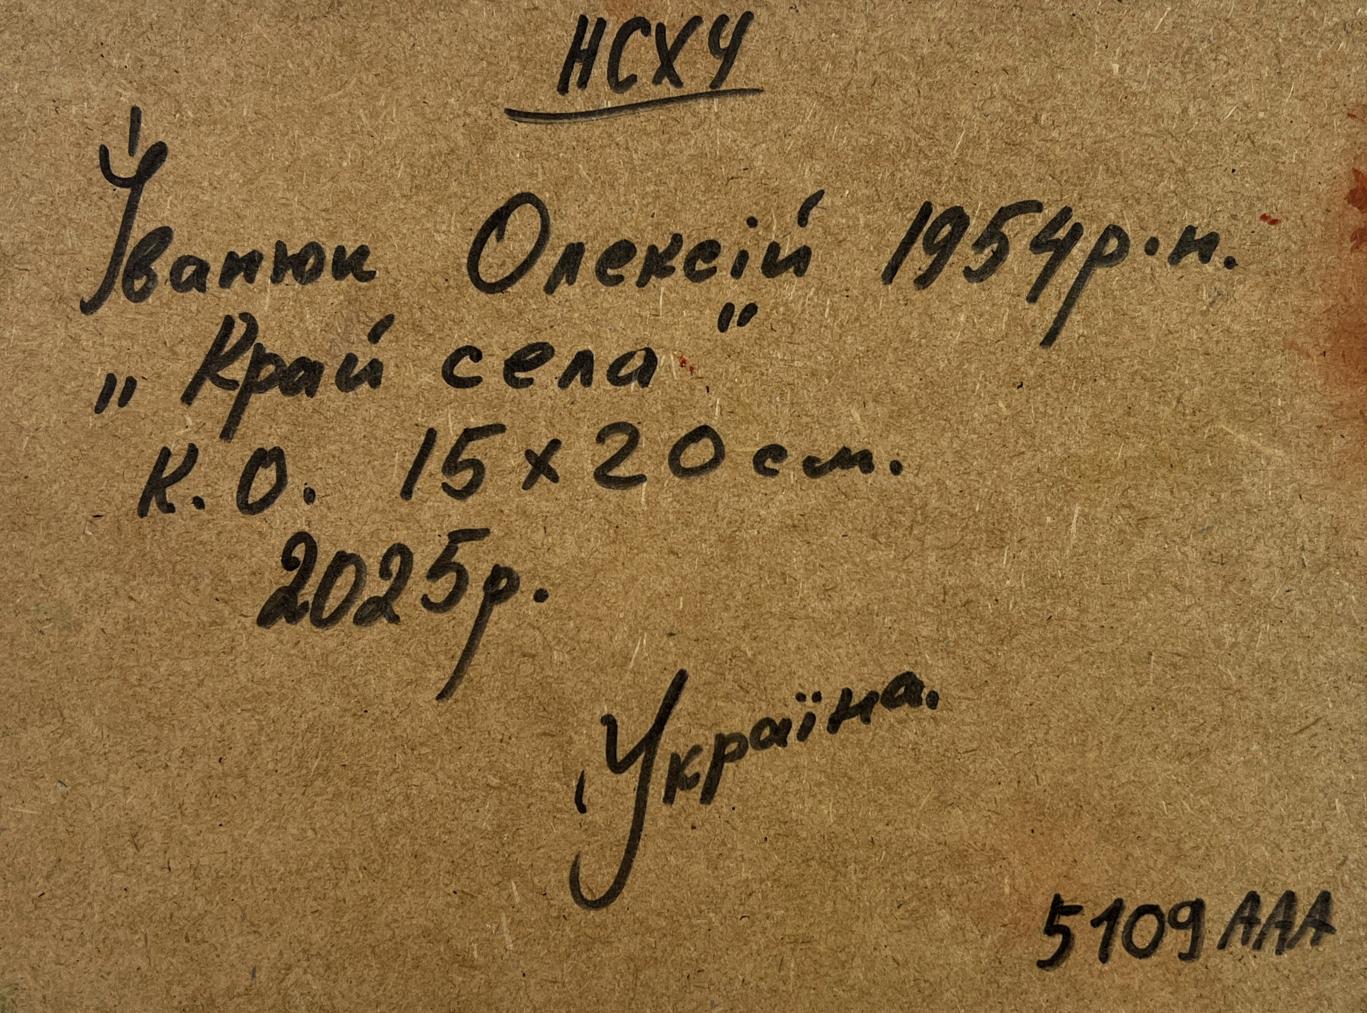 НСХУ
Іванюк Олексій 1954р.н.
„Край села"
К.О. 15х20см.
2025р.
Україна.
5109ААА